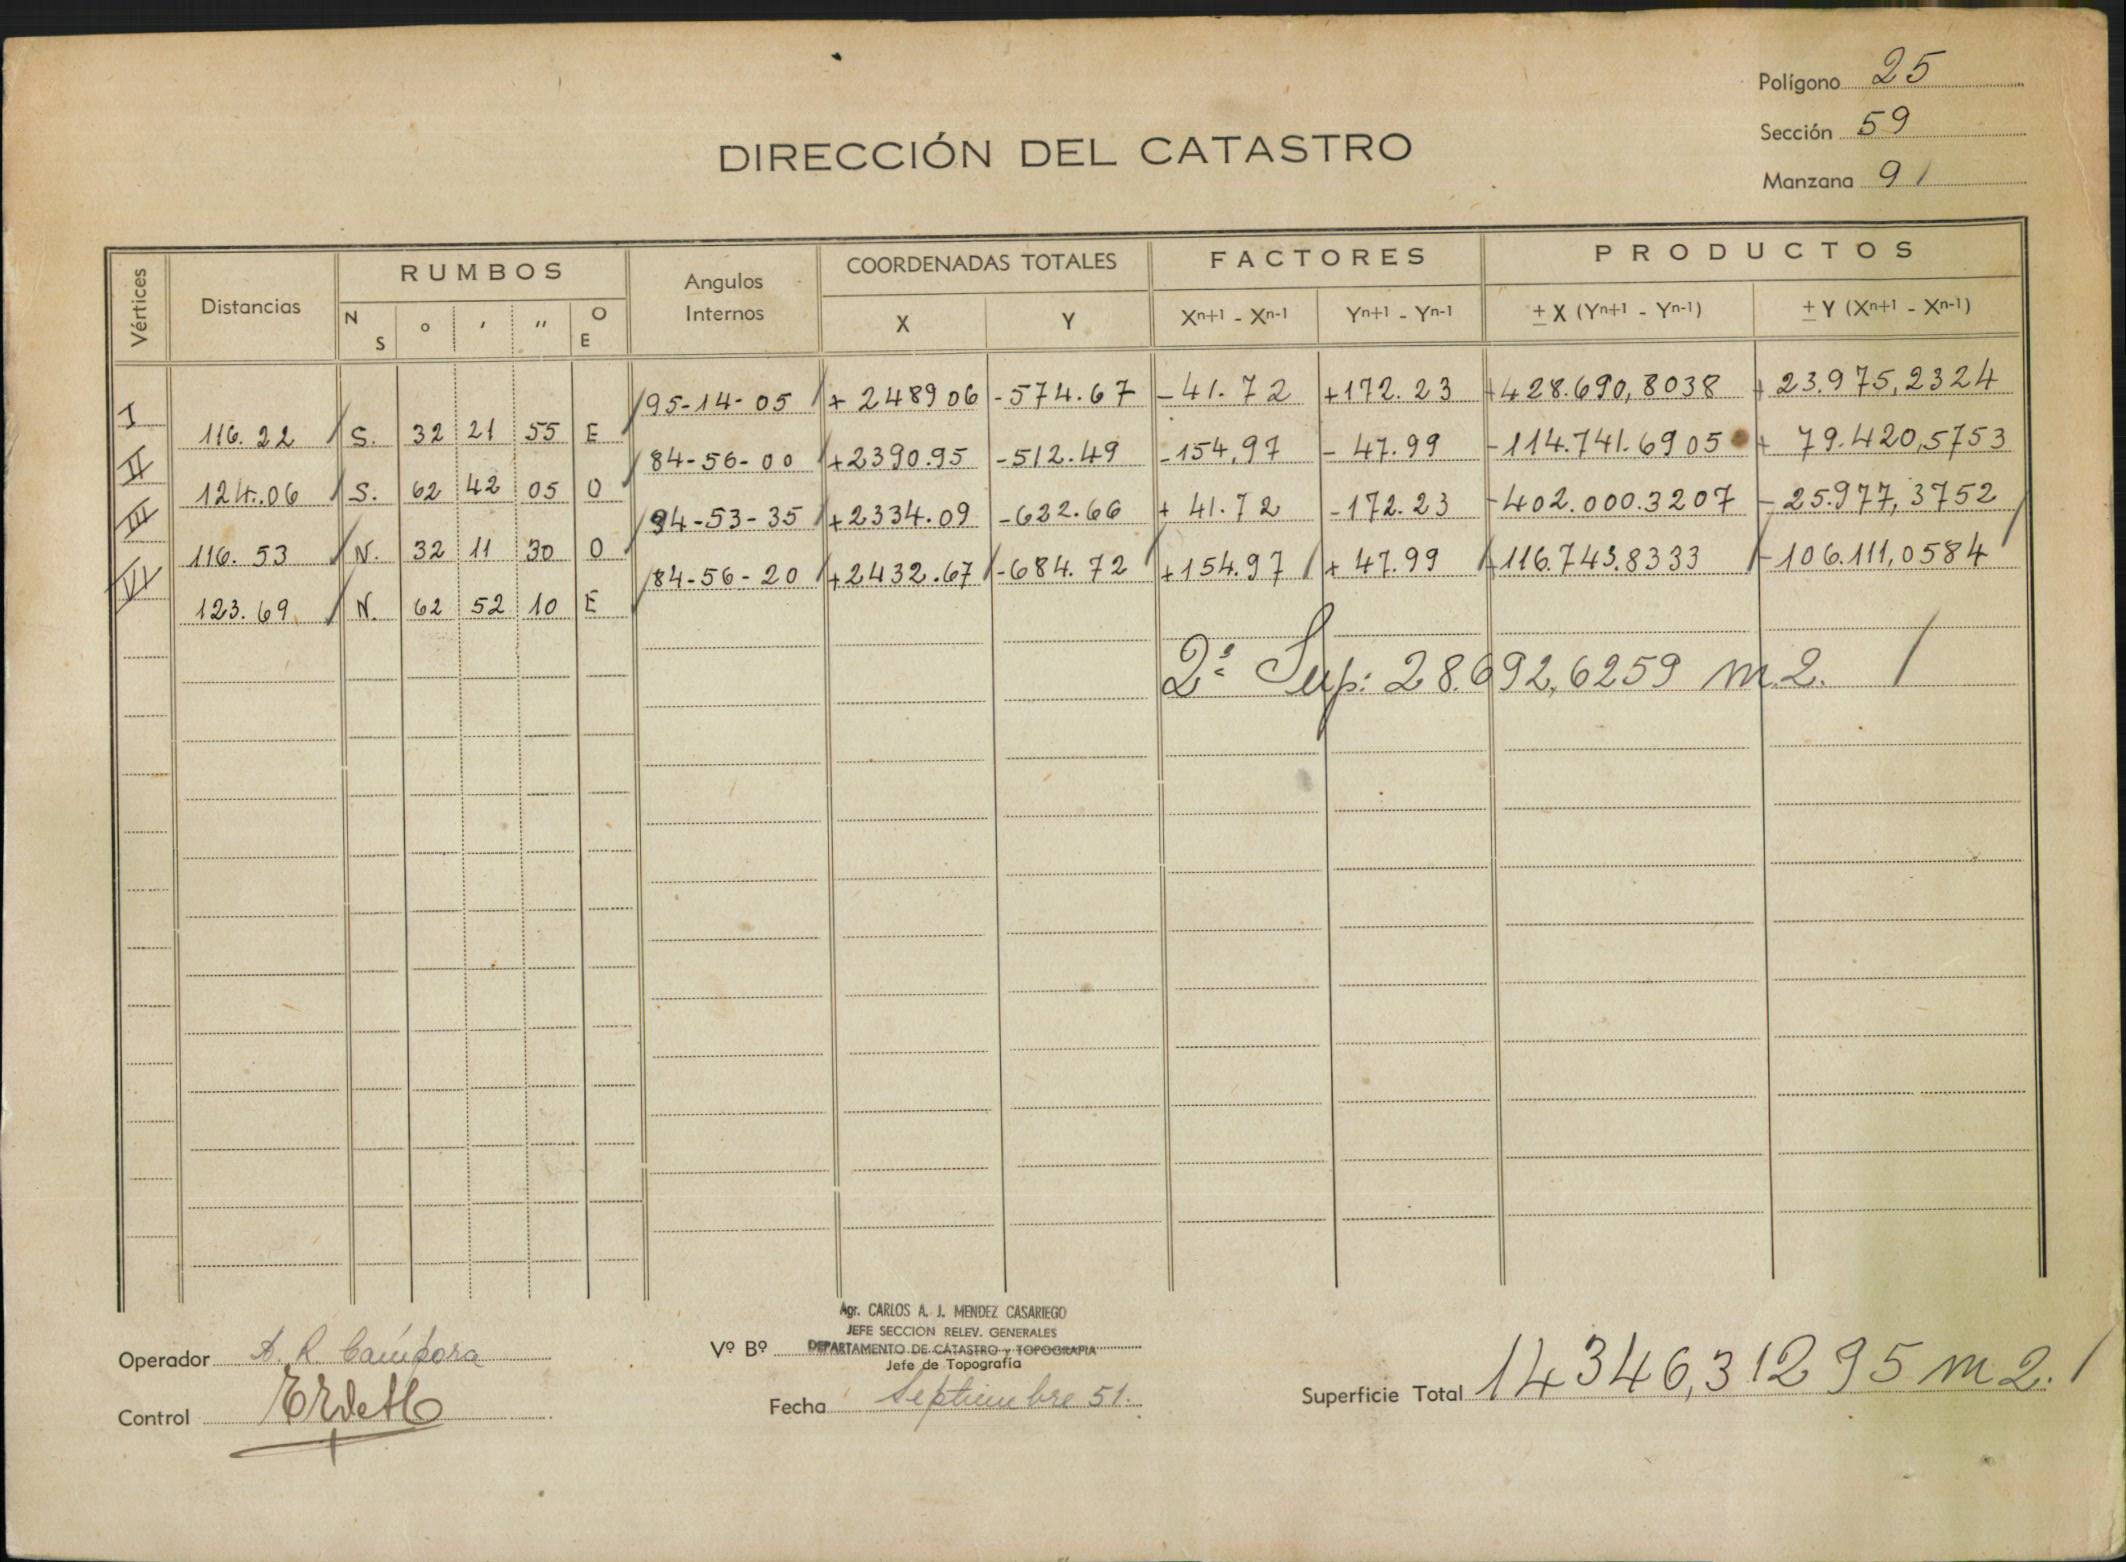 Polígono 25
Sección 59
Manzana 91
DIRECCIÓN DEL CATASTRO
Vértices Distancias RUMBOS Angulos Internos COORDENADAS TOTALES FACTORES PRODUCTOS
N S o ' '' O E X Y Xn+1 - Xn-1 Yn+1 - Yn-1 ± X (Yn+1 - Yn-1) ± Y (Xn+1 - Xn-1)
I 95-14-05 + 248906 -574.67 -41.72 +172.23 +428.690,8038 + 23.975,2324
116.22 S. 32 21 55 E
II 84-56-00 +2390.95 -512.49 -154,97 - 47.99 -114.741.6905 + 79.420,5753
124.06 S. 62 42 05 O
III 94-53-35 +2334.09 -622.66 + 41.72 -172.23 -402.000.3207 - 25.977,3752
116.53 N. 32 11 30 O
VI 84-56-20 +2432.67 -684.72 +154.97 + 47.99 +116.743.8333 -106.111,0584
123.69 N. 62 52 10 E
2ª Sup: 28.692,6259 m2.
Agr. CARLOS A. J. MENDEZ CASARIEGO
JEFE SECCION RELEV. GENERALES
Vº Bº DEPARTAMENTO DE CATASTRO y TOPOGRAFIA
Jefe de Topografía
Operador A. R. Cámpora
Control
Fecha Septiembre 51.
Superficie Total 14346,31295 m2.